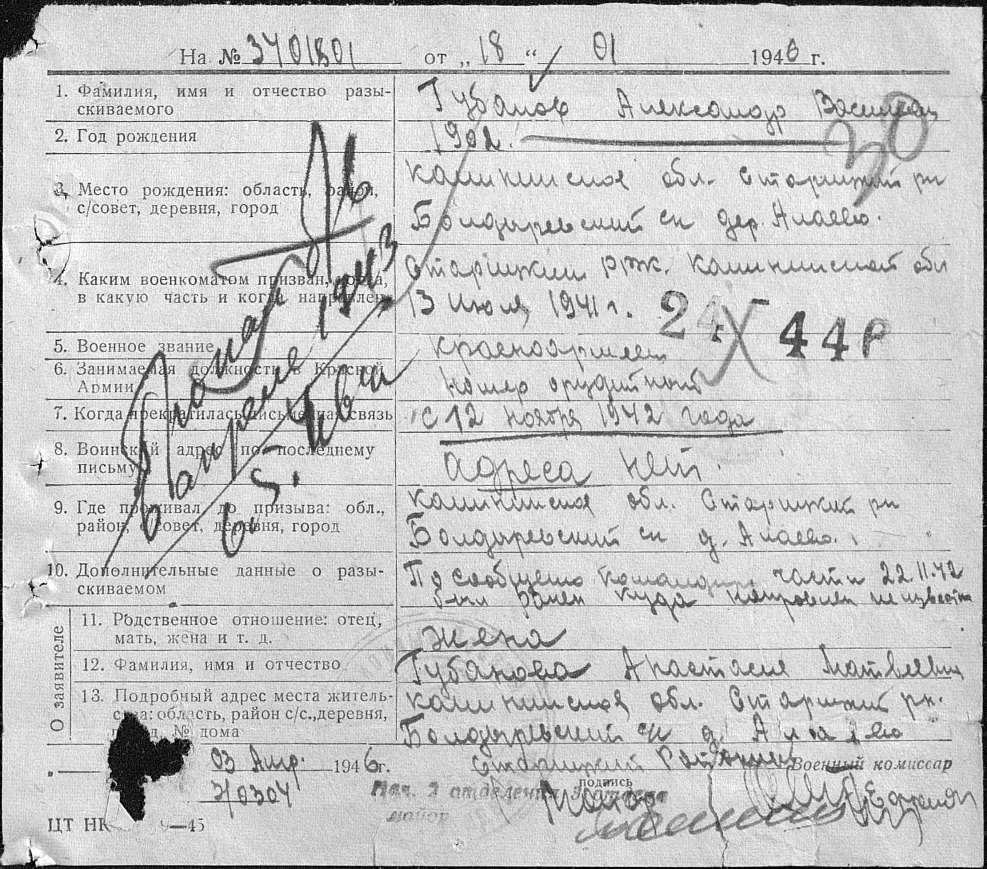 На № 3701801 от „ 18 “ 01 1946 г.
1. Фамилия, имя и отчество разы-
скиваемого
Губанов Александр
2. Год рождения
1902.
30
3. Место рождения: область, район,
с/совет, деревня, город
Калининская обл. Старицкий рн
Болдыревский сн дер. Алаево.
4. Каким военкоматом призван,
в какую часть и когда направлен
Старицким РВК. Калининской обл
13 июля 1941 г.
24 44 Р
5. Военное звание
красноармеец
6. Занимаемая должность в Красной
Армии
номер орудийный
7. Когда прекратилась письменная связь
с 12 ноября 1942 года
8. Воинский адрес по последнему
письму
адреса нет.
9. Где проживал до призыва: обл.,
район, с/совет, деревня, город
Калининская обл. Старицкий рн
Болдыревский сн д. Алаево.
10. Дополнительные данные о разы-
скиваемом
По сообщению командира части 22.11.42
был ранен куда направлен неизвестно
Пропал
в апреле 1943
6.5.
О заявителе
11. Родственное отношение: отец,
мать, жена и т. д.
жена
12. Фамилия, имя и отчество
Губанова Анастасия Матвеевна
13. Подробный адрес места житель-
ства: область, район с/с., деревня,
город, № дома
Калининская обл. Старицкий рн.
Болдыревский сн д. Алаево
03 Апр. 1946 г.
Старицкий Райвоенком
Военный комиссар
3/0304
подпись
Нач. 2 отделения
майор
ЦТ НК 9—45